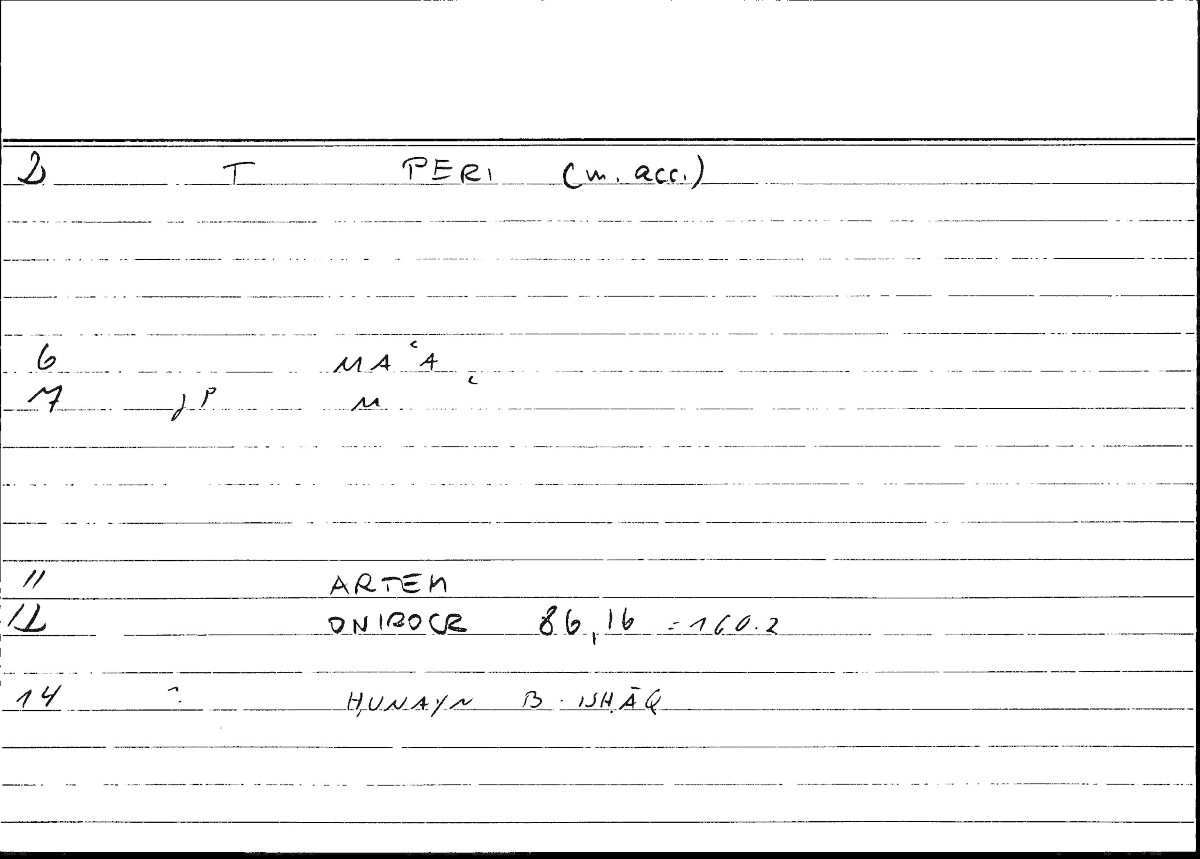 2 T PERI (m. acc.)
6 MAʿA
7 P M
11 ARTEM
12 ONIROCR 86,16 = 160.2
14 ḤUNAYN B. ISḤĀQ